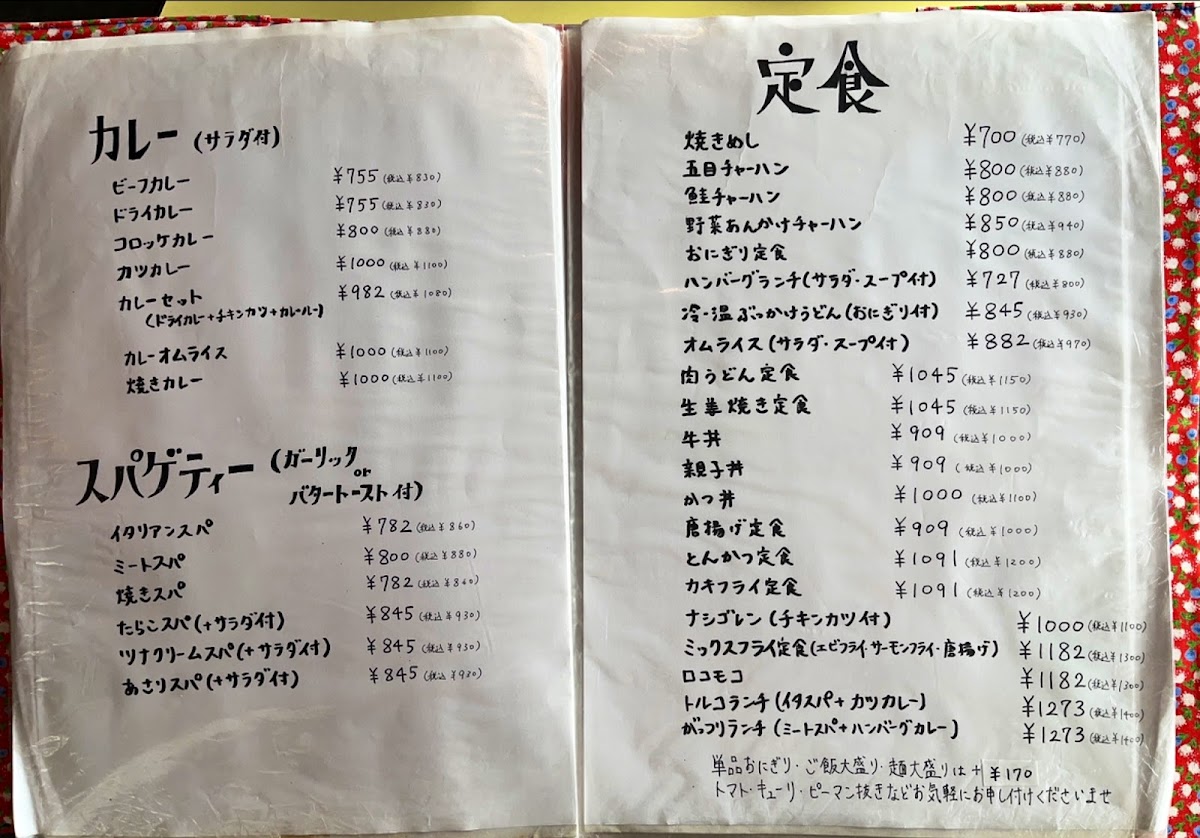 カレー (サラダ付)
ビーフカレー ¥755 (税込¥830)
ドライカレー ¥755 (税込¥830)
コロッケカレー ¥800 (税込¥880)
カツカレー ¥1000 (税込¥1100)
カレーセット ¥982 (税込¥1080)
(ドライカレー+チキンカツ+カレールー)
カレーオムライス ¥1000 (税込¥1100)
焼きカレー ¥1000 (税込¥1100)
スパゲティー (ガーリック
or
バタートースト付)
イタリアンスパ ¥782 (税込¥860)
ミートスパ ¥800 (税込¥880)
焼きスパ ¥782 (税込¥860)
たらこスパ(+サラダ付) ¥845 (税込¥930)
ツナクリームスパ(+サラダ付) ¥845 (税込¥930)
あさりスパ(+サラダ付) ¥845 (税込¥930)
定食
焼きめし ¥700 (税込¥770)
五目チャーハン ¥800 (税込¥880)
鮭チャーハン ¥800 (税込¥880)
野菜あんかけチャーハン ¥850 (税込¥940)
おにぎり定食 ¥800 (税込¥880)
ハンバーグランチ(サラダ・スープ付) ¥727 (税込¥800)
冷・温ぶっかけうどん(おにぎり付) ¥845 (税込¥930)
オムライス(サラダ・スープ付) ¥882 (税込¥970)
肉うどん定食 ¥1045 (税込¥1150)
生姜焼き定食 ¥1045 (税込¥1150)
牛丼 ¥909 (税込¥1000)
親子丼 ¥909 (税込¥1000)
かつ丼 ¥1000 (税込¥1100)
唐揚げ定食 ¥909 (税込¥1000)
とんかつ定食 ¥1091 (税込¥1200)
カキフライ定食 ¥1091 (税込¥1200)
ナシゴレン(チキンカツ付) ¥1000 (税込¥1100)
ミックスフライ定食(エビフライ・サーモンフライ・唐揚げ) ¥1182 (税込¥1300)
ロコモコ ¥1182 (税込¥1300)
トルコランチ(イタスパ+カツカレー) ¥1273 (税込¥1400)
がっつりランチ(ミートスパ+ハンバーグカレー) ¥1273 (税込¥1400)
単品おにぎり・ご飯大盛り・麺大盛りは+¥170
トマト・キューリ・ピーマン抜きなどお気軽にお申し付けくださいませ